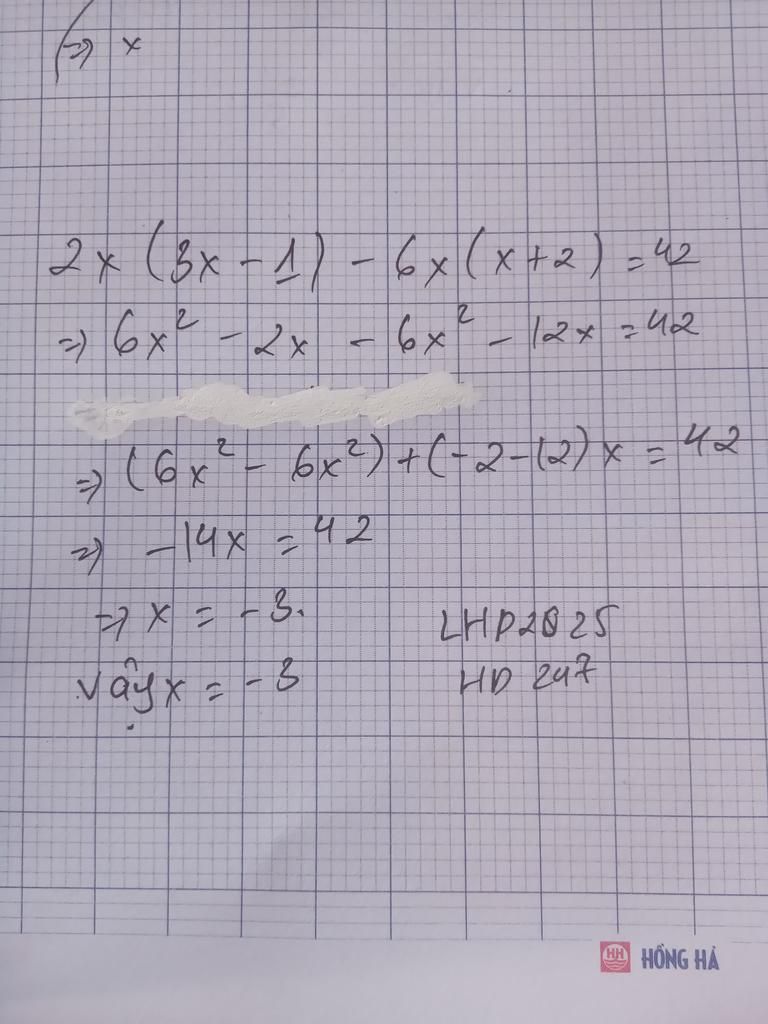 => x
2x (3x - 1) - 6x (x + 2) = 42
=> 6x² - 2x - 6x² - 12x = 42
=> (6x² - 6x²) + (-2 - 12) x = 42
=> -14x = 42
=> x = -3.
Vậy x = -3
LHP2025
HD 247
HH HỒNG HÀ